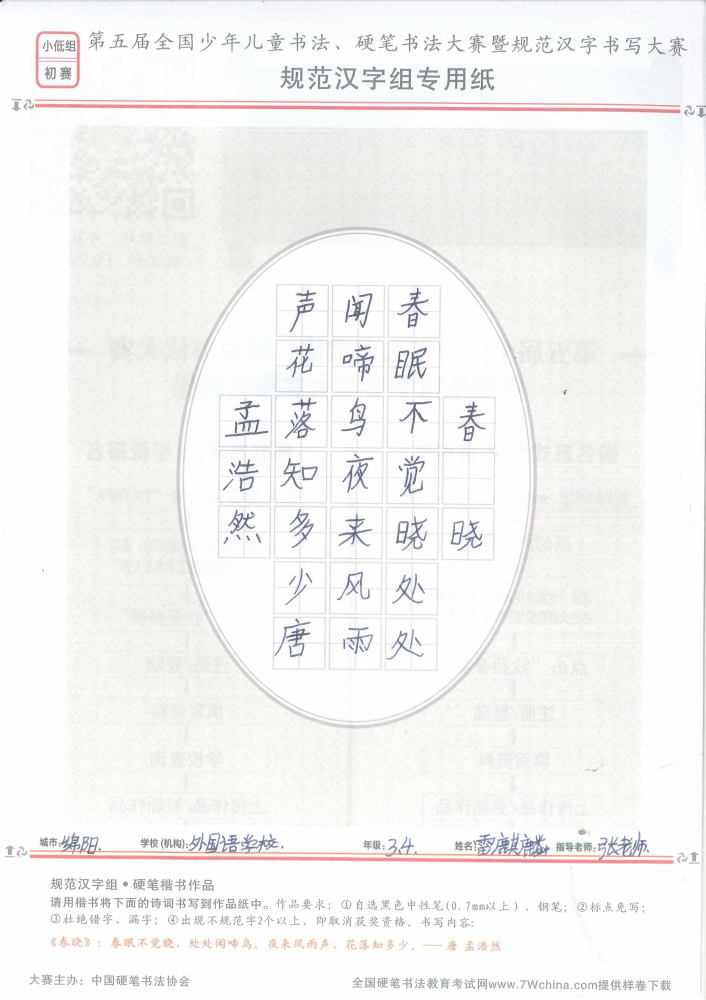 小低组
初赛
第五届全国少年儿童书法、硬笔书法大赛暨规范汉字书写大赛
规范汉字组专用纸
春晓
春眠不觉晓处处
闻啼鸟夜来风雨
声花落知多少唐
孟浩然
城市:绵阳. 学校(机构):外国语学校. 年级:3.4. 姓名:雷麒麟 指导老师:张老师.
规范汉字组•硬笔楷书作品
请用楷书将下面的诗词书写到作品纸中。作品要求：①自选黑色中性笔(0.7mm以上）、钢笔；②标点免写；
③杜绝错字、漏字；④出现不规范字2个以上，即取消获奖资格。书写内容:
《春晓》：春眠不觉晓，处处闻啼鸟。夜来风雨声，花落知多少。——唐 孟浩然
大赛主办：中国硬笔书法协会
全国硬笔书法教育考试网www.7Wchina.com提供样卷下载